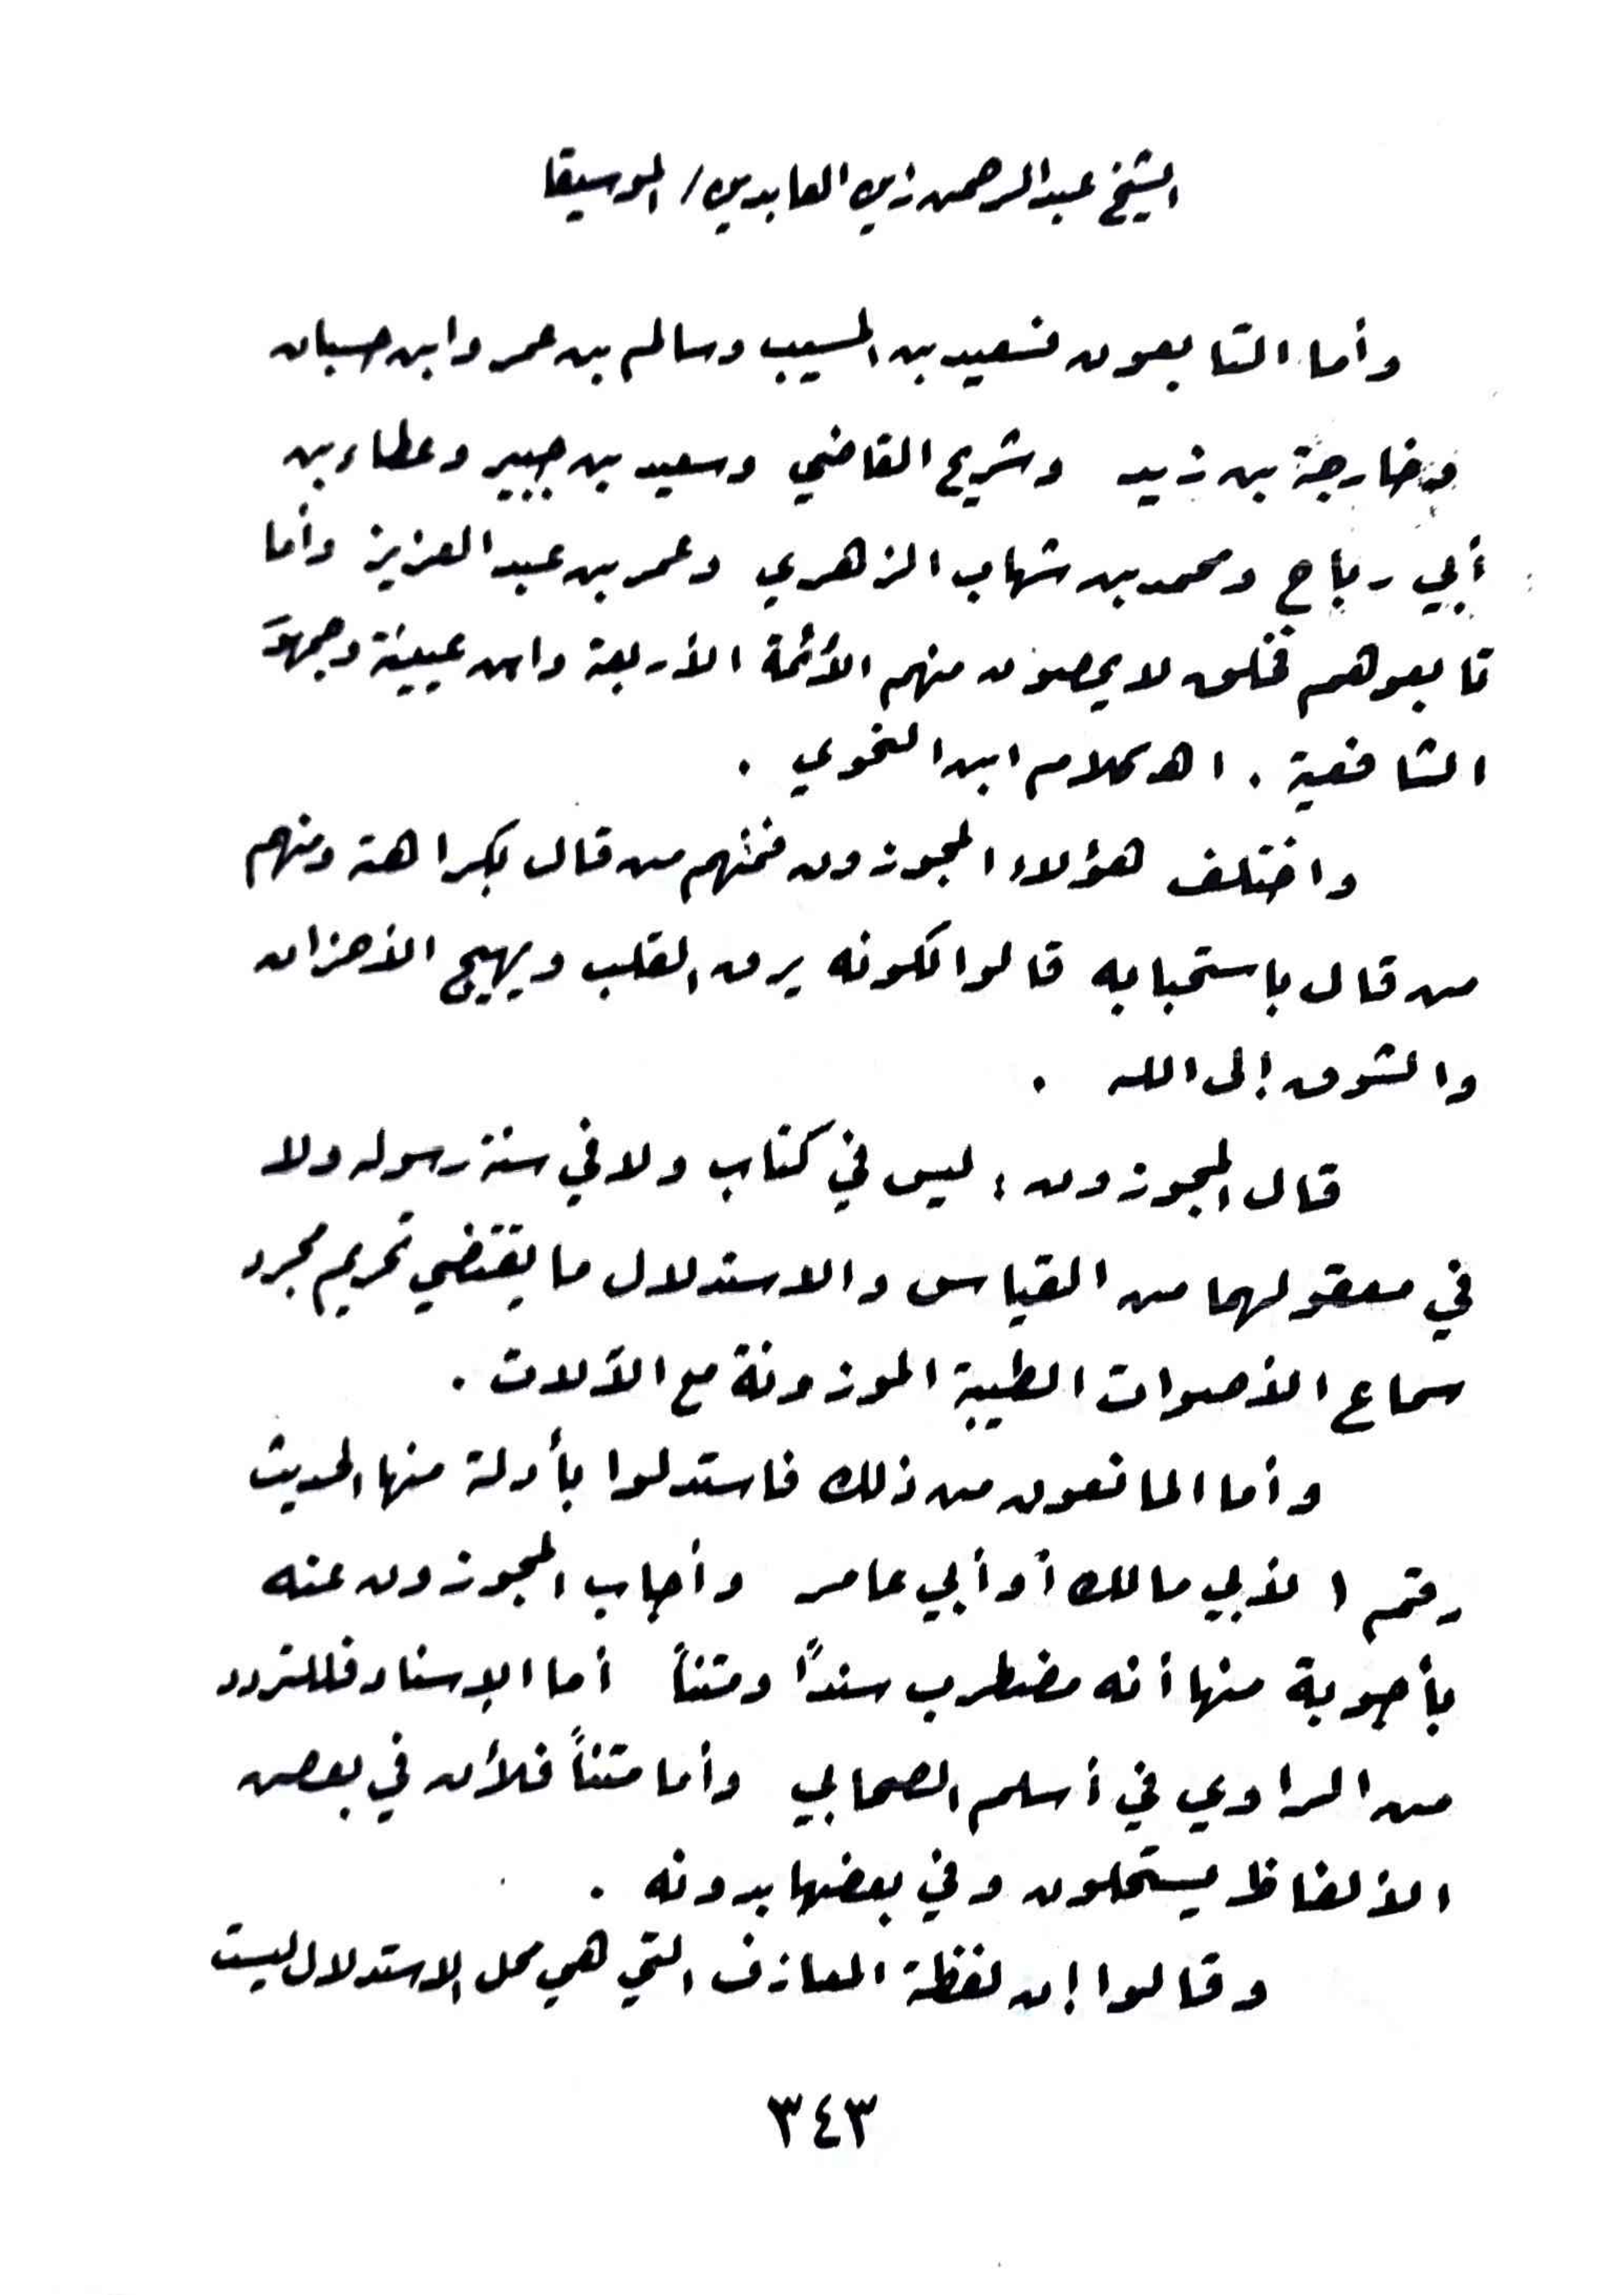 الشيخ عبدالرحمن زين العابدين / الموسيقا
وأما التابعون فسعيد بن المسيب وسالم بن عمر وابن حسبان
وخارجة بن زيد وشريح القاضي وسعيد بن جبير وعطاء بن
أبي رباح ومحمد بن شهاب الزهري وعمر بن عبد العزيز وأما
تابعوهم فخلق لا يحصون منهم الأئمة الأربعة وابن عيينة وجمهور
الشافعية . اهـ كلام ابن النحوي .
واختلف هؤلاء المجوزون فمنهم من قال بكراهته ومنهم
من قال باستحبابه قالوا لكونه يرق القلب ويهيج الأحزان
والشوق إلى الله .
قال المجوزون : ليس في كتاب ولا في سنة رسوله ولا
في معقولهما من القياس والاستدلال ما يقتضي تحريم مجرد
سماع الأصوات الطيبة الموزونة مع الآلات .
وأما المانعون من ذلك فاستدلوا بأدلة منها الحديث
رقم ١ لأبي مالك أو أبي عامر وأجاب المجوزون عنه
بأجوبة منها أنه مضطرب سنداً ومتناً أما الإسناد فللتردد
من الراوي في أسلم الصحابي وأما متناً فلأن في بعض
الألفاظ يستحلون وفي بعضها بدونه .
وقالوا إن لفظة المعازف التي هي محل الاستدلال ليست
٣٤٣